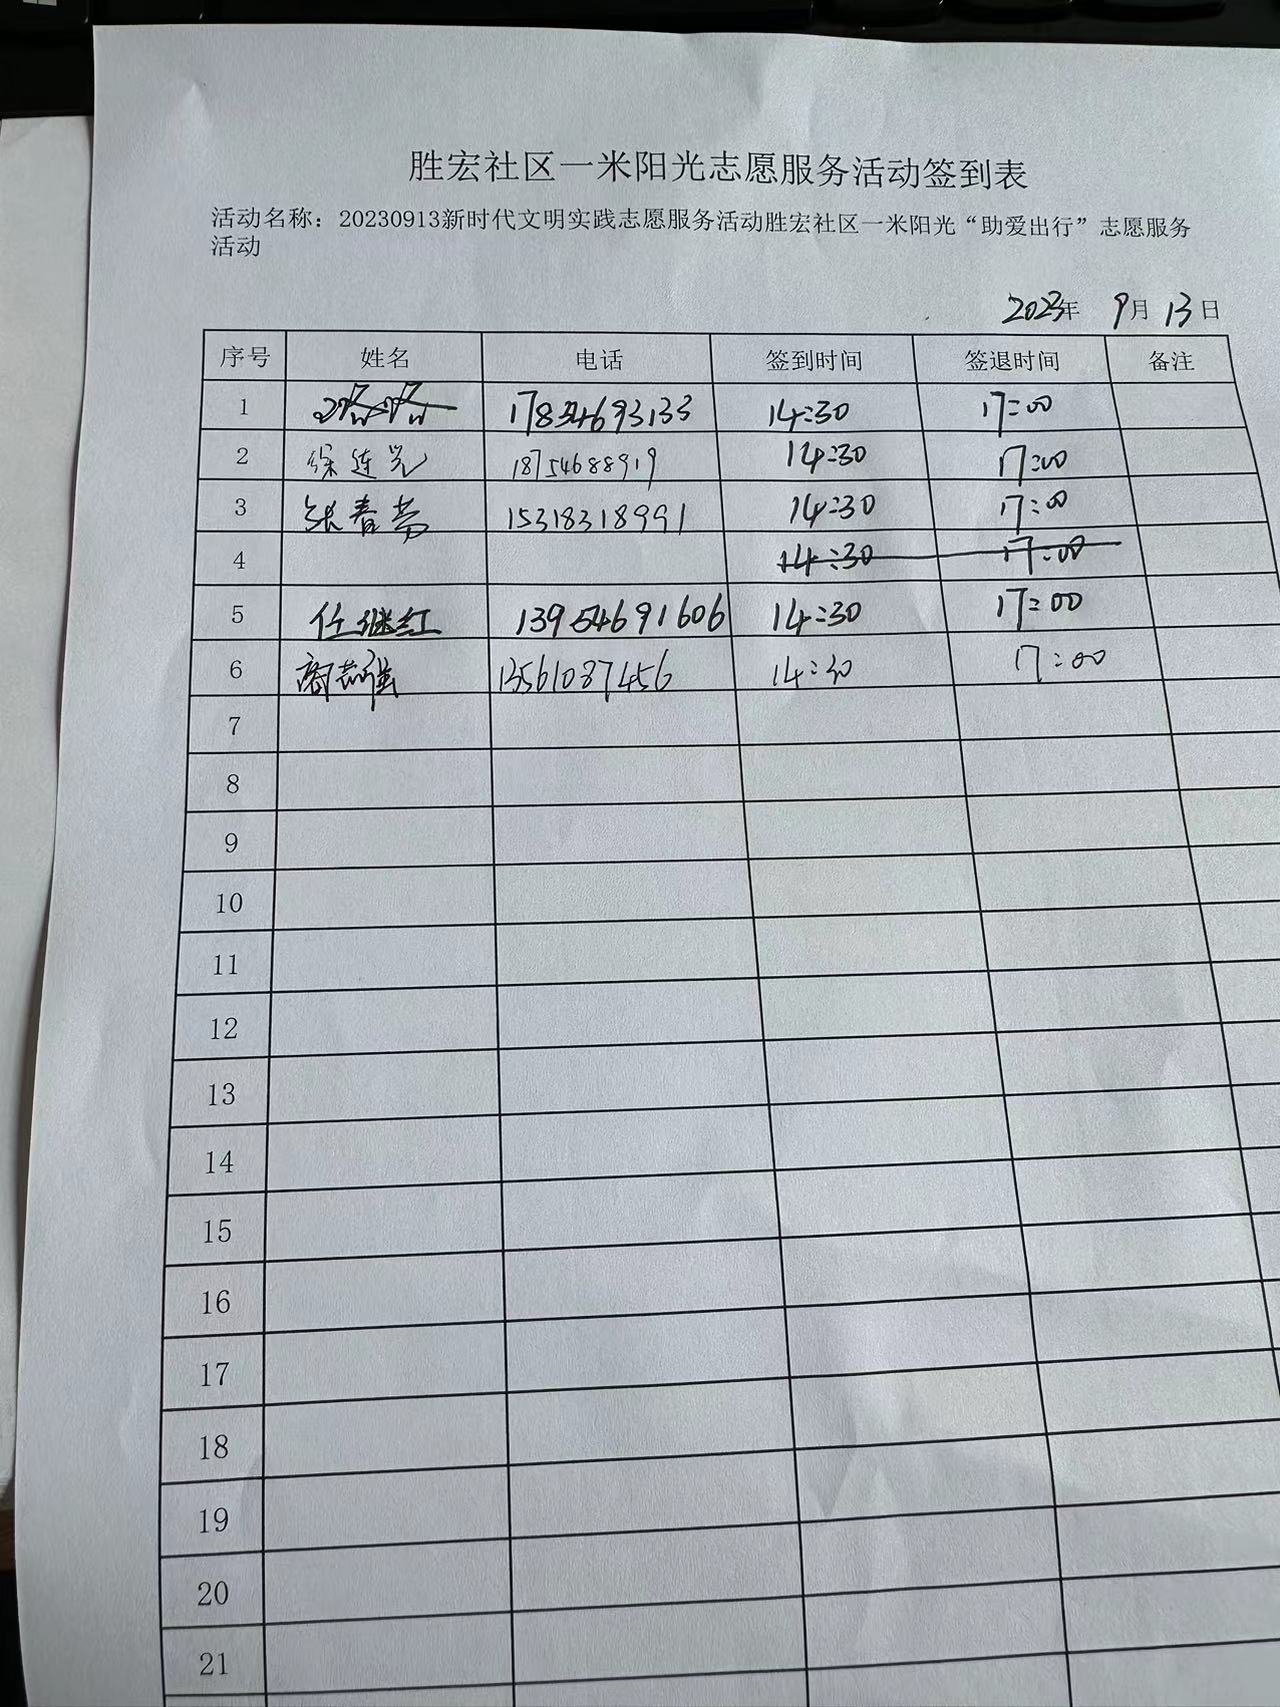 胜宏社区一米阳光志愿服务活动签到表
活动名称：20230913新时代文明实践志愿服务活动胜宏社区一米阳光“助爱出行”志愿服务
活动
2023年 9月 13日
序号 姓名 电话 签到时间 签退时间 备注
1 17854693133 14:30 17:00
2 徐连光 18754688919 14:30 17:00
3 张春芳 15318318991 14:30 17:00
4 14:30 17:00
5 任继红 13954691606 14:30 17:00
6 13561087456 14:30 17:00
7
8
9
10
11
12
13
14
15
16
17
18
19
20
21